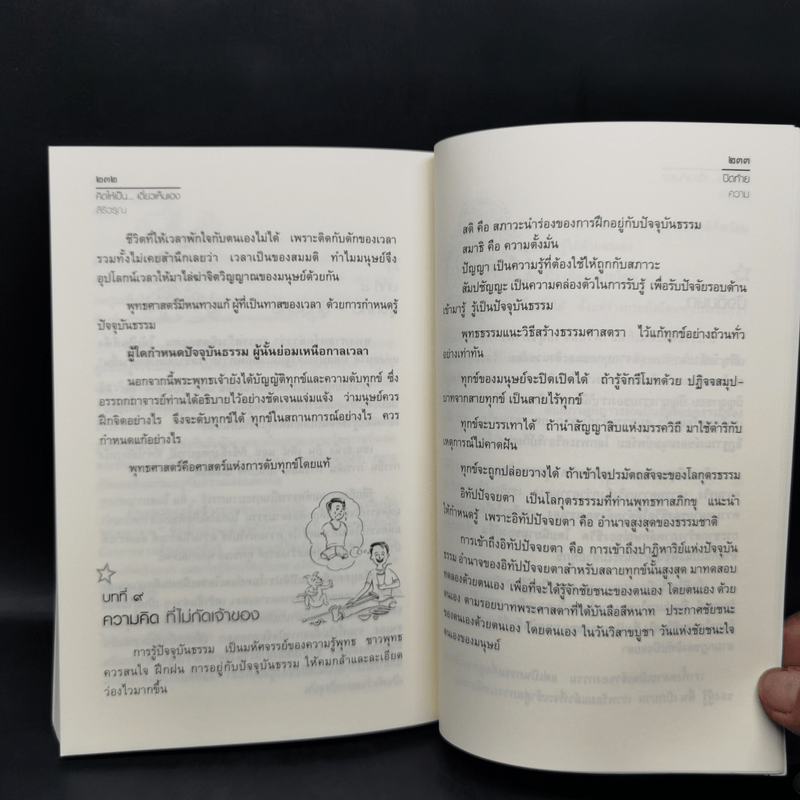 ๒๓๒
คิดให้เป็น... เดี๋ยวเห็นเอง
สิริอรุณ
ชีวิตที่ให้เวลาพักใจกับตนเองไม่ได้ เพราะติดกับดักของเวลา
รวมทั้งไม่เคยสำนึกเลยว่า เวลาเป็นของสมมติ ทำไมมนุษย์จึง
อุปโลกน์เวลาให้มาไล่ฆ่าจิตวิญญาณของมนุษย์ด้วยกัน
พุทธศาสตร์มีหนทางแก้ ผู้ที่เป็นทาสของเวลา ด้วยการกำหนดรู้
ปัจจุบันธรรม
ผู้ใดกำหนดปัจจุบันธรรม ผู้นั้นย่อมเหนือกาลเวลา
นอกจากนี้พระพุทธเจ้ายังได้บัญญัติทุกข์และความดับทุกข์ ซึ่ง
อรรถกถาจารย์ท่านได้อธิบายไว้อย่างชัดเจนแจ่มแจ้ง ว่ามนุษย์ควร
ฝึกจิตอย่างไร จึงจะดับทุกข์ได้ ทุกข์ในสถานการณ์อย่างไร ควร
กำหนดแก้อย่างไร
พุทธศาสตร์คือศาสตร์แห่งการดับทุกข์โดยแท้
บทที่ ๙
ความคิด ที่ไม่กัดเจ้าของ
การรู้ปัจจุบันธรรม เป็นมหัศจรรย์ของความรู้พุทธ ชาวพุทธ
ควรสนใจ ฝึกฝน การอยู่กับปัจจุบันธรรม ให้คมกล้าและละเอียด
ว่องไวมากขึ้น
๒๓๓
ปิดท้าย
ความ
สติ คือ สภาวะนำร่องของการฝึกอยู่กับปัจจุบันธรรม
สมาธิ คือ ความตั้งมั่น
ปัญญา เป็นความรู้ที่ต้องใช้ให้ถูกกับสภาวะ
สัมปชัญญะ เป็นความคล่องตัวในการรับรู้ เพื่อรับปัจจัยรอบด้าน
เข้ามารู้ รู้เป็นปัจจุบันธรรม
พุทธธรรมแนะวิธีสร้างธรรมศาสตรา ไว้แก้ทุกข์อย่างถ้วนทั่ว
อย่างเท่าทัน
ทุกข์ของมนุษย์จะปิดเปิดได้ ถ้ารู้จักรีโมทด้วย ปฏิจจสมุป-
บาทจากสายทุกข์ เป็นสายไร้ทุกข์
ทุกข์จะบรรเทาได้ ถ้านำสัญญาสิบแห่งมรรควิถี มาใช้ดำริกับ
เหตุการณ์ไม่คาดฝัน
ทุกข์จะถูกปล่อยวางได้ ถ้าเข้าใจปรมัตถสัจจะของโลกุตรธรรม
อิทัปปัจจยตา เป็นโลกุตรธรรมที่ท่านพุทธทาสภิกขุ แนะนำ
ให้กำหนดรู้ เพราะอิทัปปัจจยตา คือ อำนาจสูงสุดของธรรมชาติ
การเข้าถึงอิทัปปัจจยตา คือ การเข้าถึงปาฏิหาริย์แห่งปัจจุบัน
ธรรม อำนาจของอิทัปปัจจยตาสำหรับสลายทุกข์นั้นสูงสุด มาทดสอบ
ทดลองด้วยตนเอง เพื่อที่จะได้รู้จักชัยชนะของตนเอง โดยตนเอง ด้วย
ตนเอง ตามรอยบาทพระศาสดาที่ได้บันลือสีหนาท ประกาศชัยชนะ
ของตนเองด้วยตนเอง โดยตนเอง ในวันวิสาขบูชา วันแห่งชัยชนะใจ
ตนเองของมนุษย์